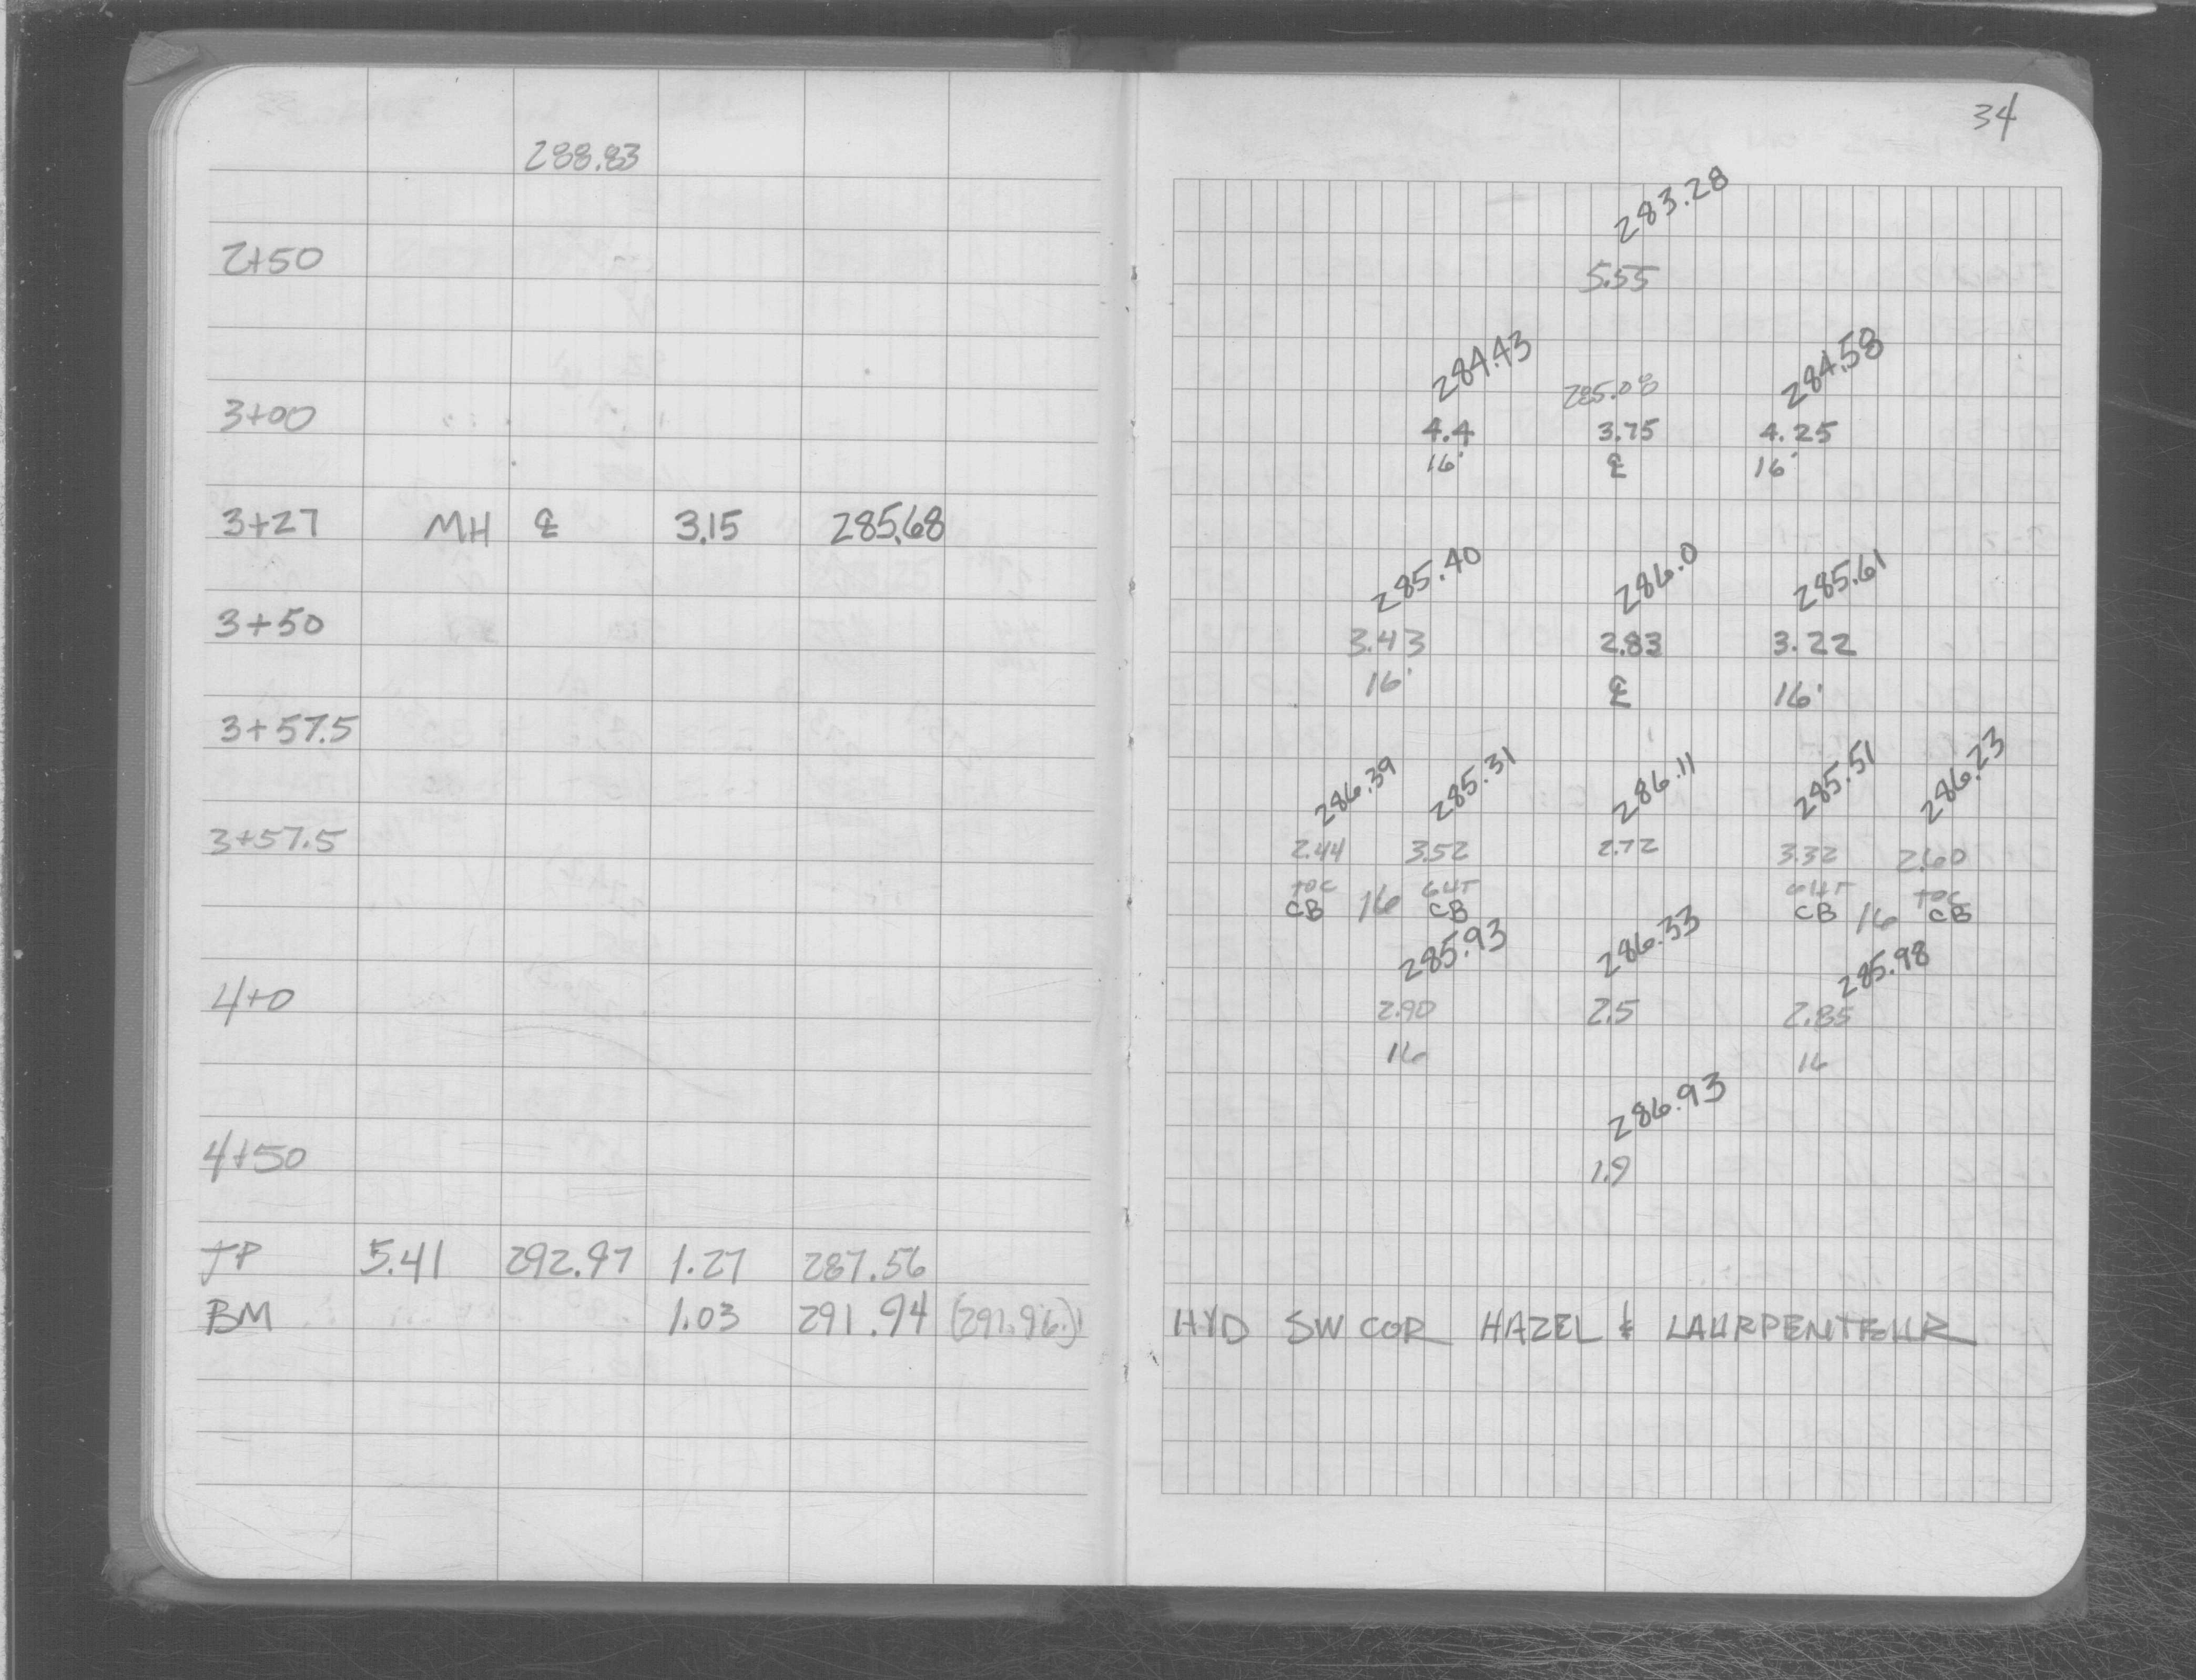 34
288.83
283.28
2+50 5.55
284.43 285.08 284.58
3+00 4.4 3.75 4.25
16' ℄ 16'
3+27 MH ℄ 3.15 285.68
285.40 286.0 285.61
3+50 3.43 2.83 3.22
16' ℄ 16'
3+57.5
286.39 285.31 286.11 285.51 286.23
3+57.5 2.44 3.52 2.72 3.32 2.60
TOC GUT GUT TOC
CB 16 CB CB 16 CB
285.93 286.33 285.98
4+0 2.90 2.5 2.85
16 16
286.93
4+50 1.9
TP 5.41 292.97 1.27 287.56
BM 1.03 291.94 (291.96) HYD SW COR HAZEL & LAURPENTEUR